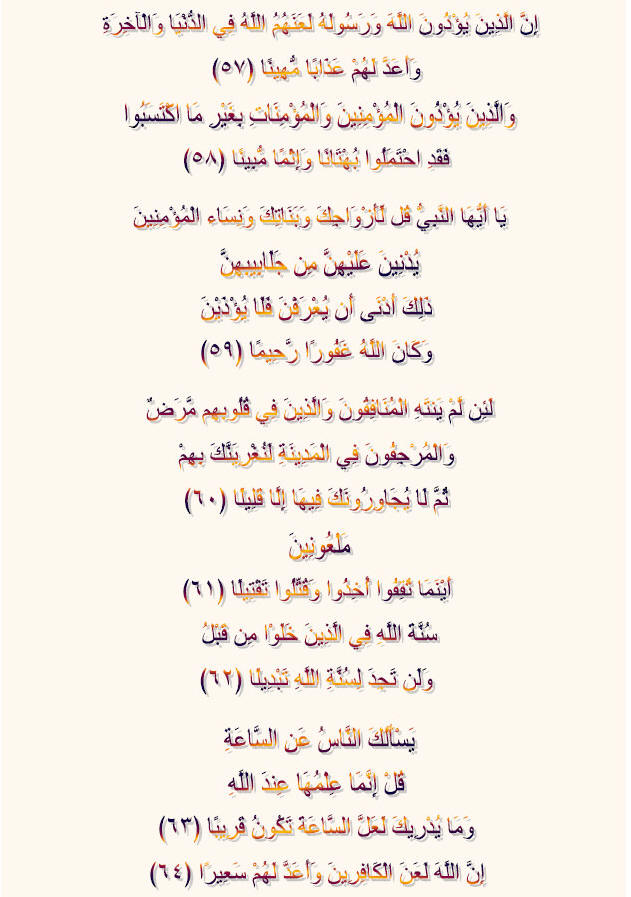 إِنَّ الَّذِينَ يُؤْذُونَ اللَّهَ وَرَسُولَهُ لَعَنَهُمُ اللَّهُ فِي الدُّنْيَا وَالْآخِرَةِ
وَأَعَدَّ لَهُمْ عَذَابًا مُّهِينًا (٥٧)
وَالَّذِينَ يُؤْذُونَ الْمُؤْمِنِينَ وَالْمُؤْمِنَاتِ بِغَيْرِ مَا اكْتَسَبُوا
فَقَدِ احْتَمَلُوا بُهْتَانًا وَإِثْمًا مُّبِينًا (٥٨)
يَا أَيُّهَا النَّبِيُّ قُل لِّأَزْوَاجِكَ وَبَنَاتِكَ وَنِسَاء الْمُؤْمِنِينَ
يُدْنِينَ عَلَيْهِنَّ مِن جَلَابِيبِهِنَّ
ذَلِكَ أَدْنَى أَن يُعْرَفْنَ فَلَا يُؤْذَيْنَ
وَكَانَ اللَّهُ غَفُورًا رَّحِيمًا (٥٩)
لَئِن لَّمْ يَنتَهِ الْمُنَافِقُونَ وَالَّذِينَ فِي قُلُوبِهِم مَّرَضٌ
وَالْمُرْجِفُونَ فِي الْمَدِينَةِ لَنُغْرِيَنَّكَ بِهِمْ
ثُمَّ لَا يُجَاوِرُونَكَ فِيهَا إِلَّا قَلِيلًا (٦٠)
مَلْعُونِينَ
أَيْنَمَا ثُقِفُوا أُخِذُوا وَقُتِّلُوا تَقْتِيلًا (٦١)
سُنَّةَ اللَّهِ فِي الَّذِينَ خَلَوْا مِن قَبْلُ
وَلَن تَجِدَ لِسُنَّةِ اللَّهِ تَبْدِيلًا (٦٢)
يَسْأَلُكَ النَّاسُ عَنِ السَّاعَةِ
قُلْ إِنَّمَا عِلْمُهَا عِندَ اللَّهِ
وَمَا يُدْرِيكَ لَعَلَّ السَّاعَةَ تَكُونُ قَرِيبًا (٦٣)
إِنَّ اللَّهَ لَعَنَ الْكَافِرِينَ وَأَعَدَّ لَهُمْ سَعِيرًا (٦٤)